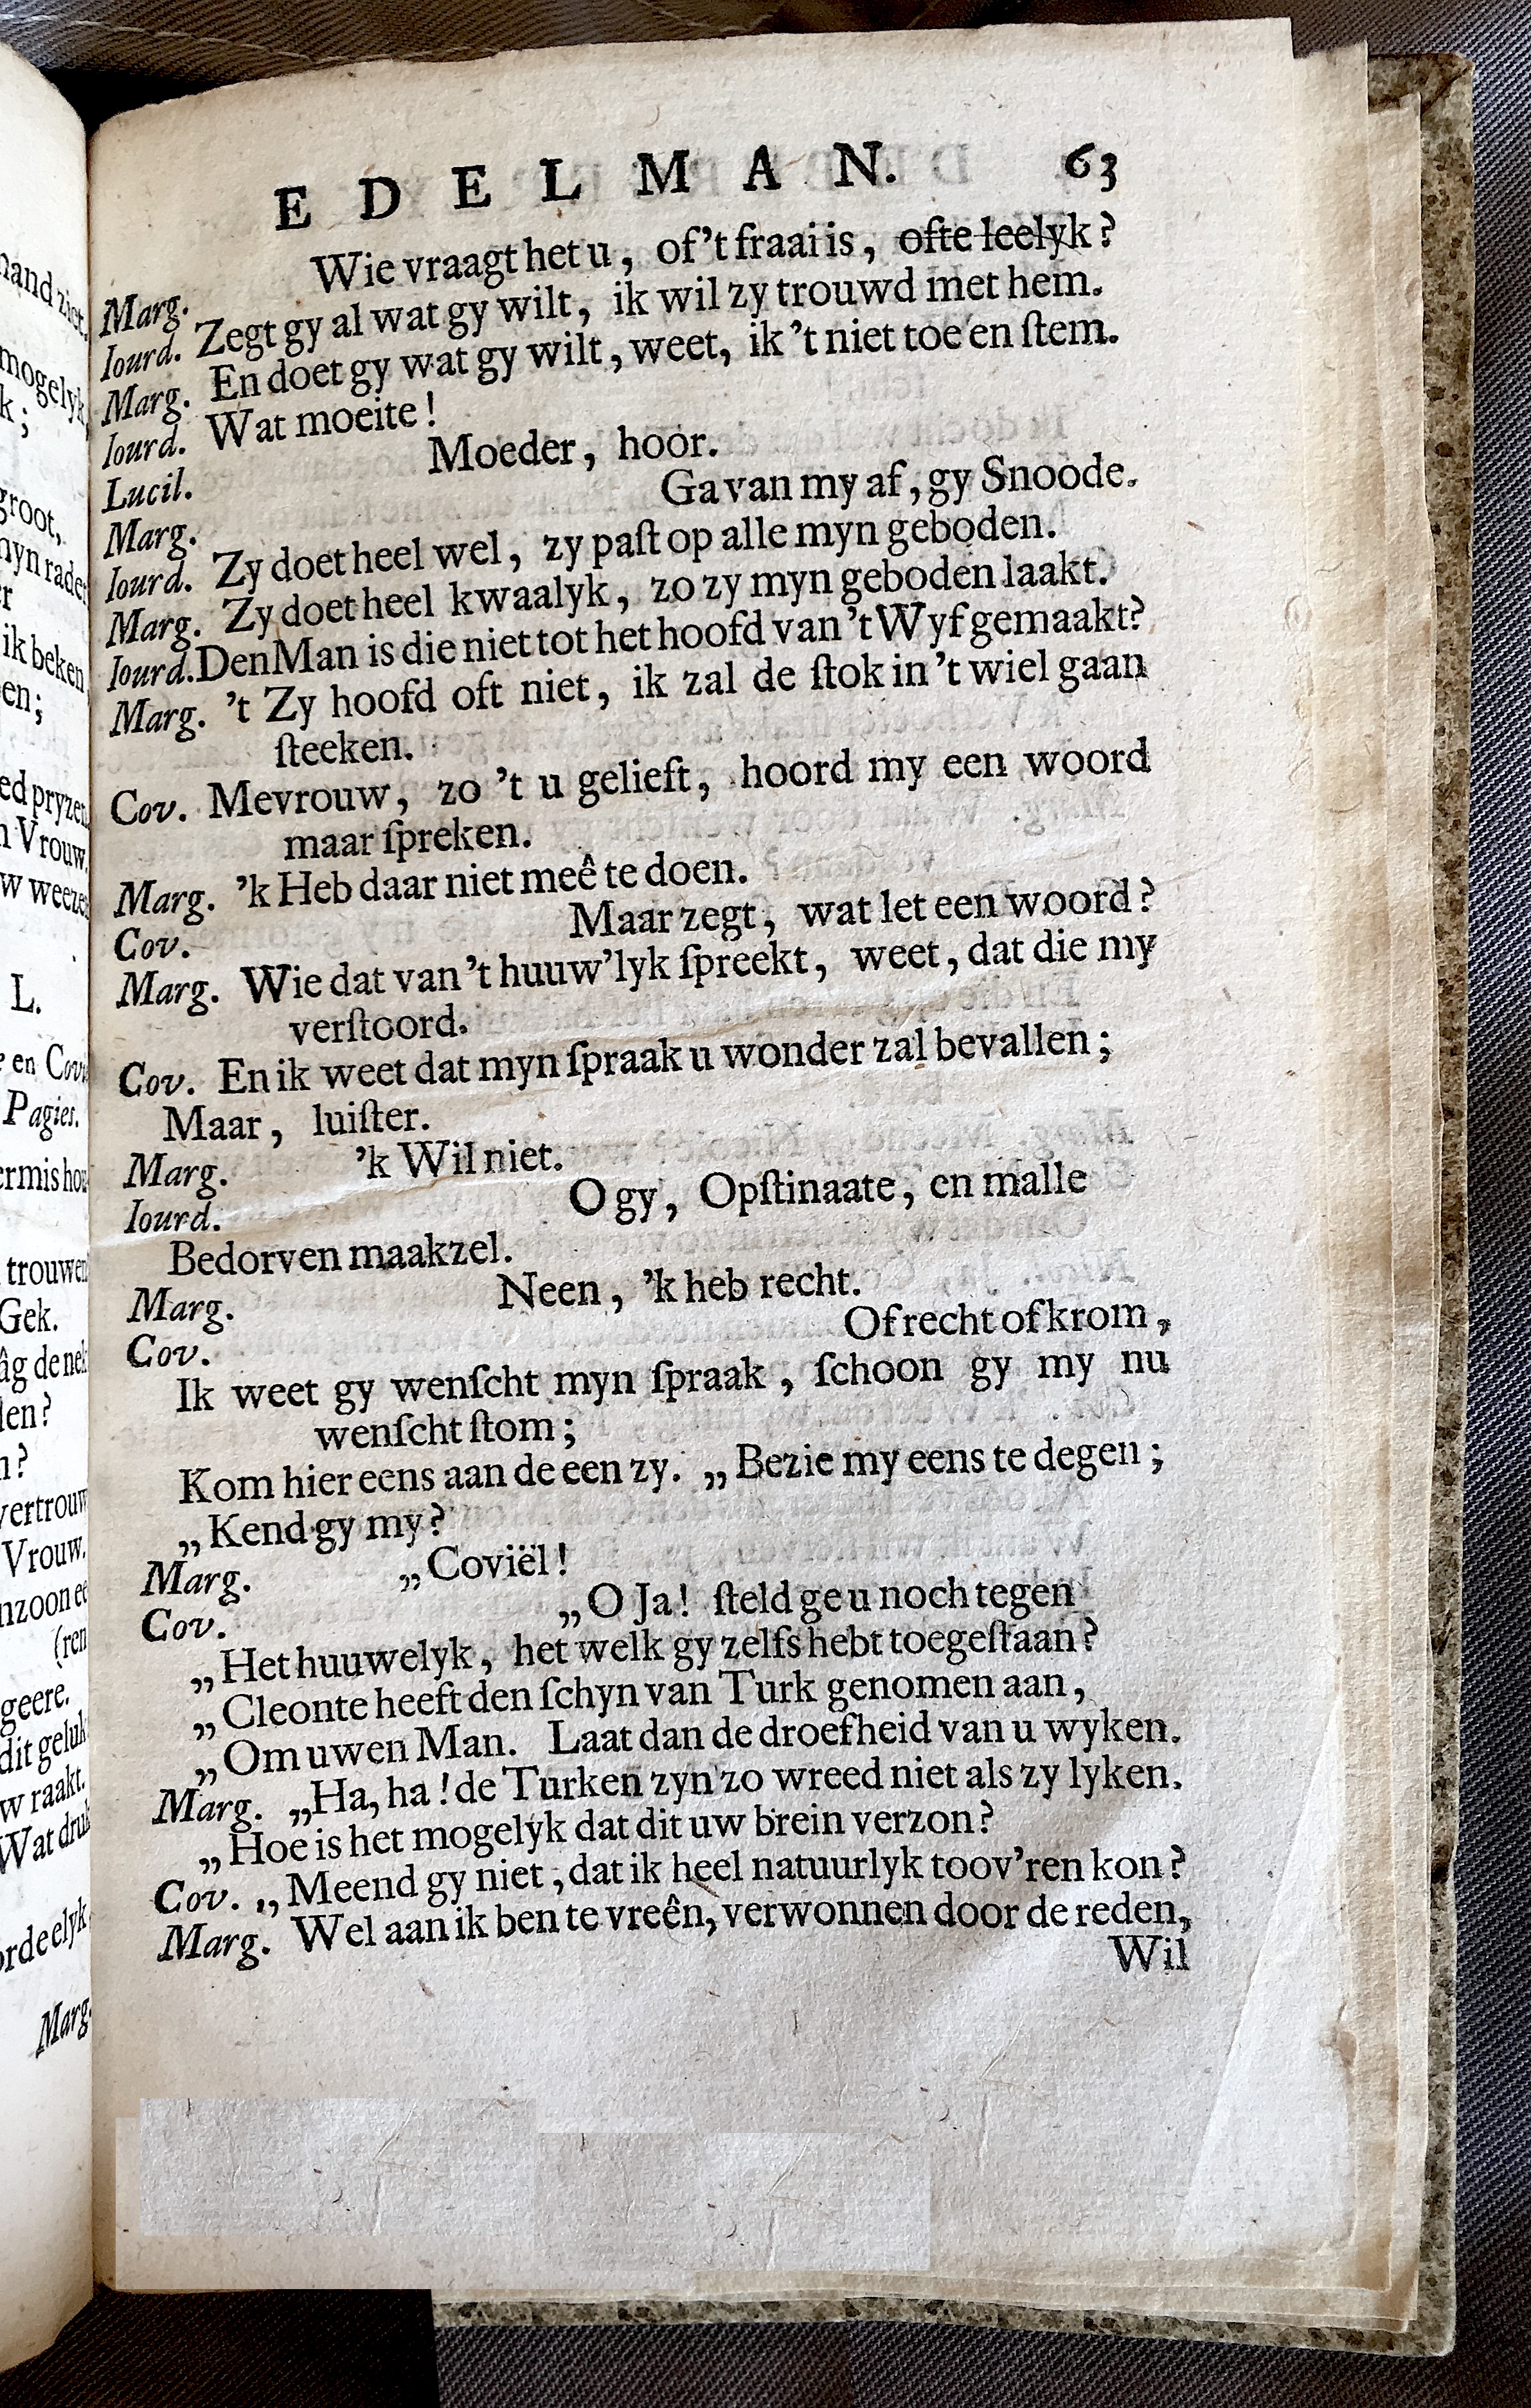 EDELMAN. 63
Wie vraagt het u, of 't fraai is, ofte leelyk?
Marg. Zegt gy al wat gy wilt, ik wil zy trouwd met hem.
Iourd. En doet gy wat gy wilt, weet, ik 't niet toe en ſtem.
Marg. Wat moeite!
Iourd. Moeder, hoor.
Lucil. Ga van my af, gy Snoode.
Marg. Zy doet heel wel, zy paſt op alle myn geboden.
Iourd. Zy doet heel kwaalyk, zo zy myn geboden laakt.
Marg. Den Man is die niet tot het hoofd van 't Wyf gemaakt?
Iourd. 't Zy hoofd oft niet, ik zal de ſtok in 't wiel gaan
Marg. ſteeken.
Cov. Mevrouw, zo 't u gelieft, hoord my een woord
maar ſpreken.
Marg. 'k Heb daar niet meê te doen.
Cov. Maar zegt, wat let een woord?
Marg. Wie dat van 't huuw'lyk ſpreekt, weet, dat die my
verſtoord.
Cov. En ik weet dat myn ſpraak u wonder zal bevallen;
Maar, luiſter.
Marg. 'k Wil niet.
Iourd. O gy, Opſtinaate, en malle
Bedorven maakzel.
Marg. Neen, 'k heb recht.
Cov. Of recht of krom,
Ik weet gy wenſcht myn ſpraak, ſchoon gy my nu
wenſcht ſtom;
Kom hier eens aan de een zy. „Bezie my eens te degen;
„Kend gy my?
Marg. „Coviël!
Cov. „O Ja! ſteld ge u noch tegen
„Het huuwelyk, het welk gy zelfs hebt toegeſtaan?
„Cleonte heeft den ſchyn van Turk genomen aan,
„Om uwen Man. Laat dan de droefheid van u wyken.
Marg. „Ha, ha! de Turken zyn zo wreed niet als zy lyken.
„Hoe is het mogelyk dat dit uw brein verzon?
Cov. „Meend gy niet, dat ik heel natuurlyk toov'ren kon?
Marg. Wel aan ik ben te vreên, verwonnen door de reden,
Wil